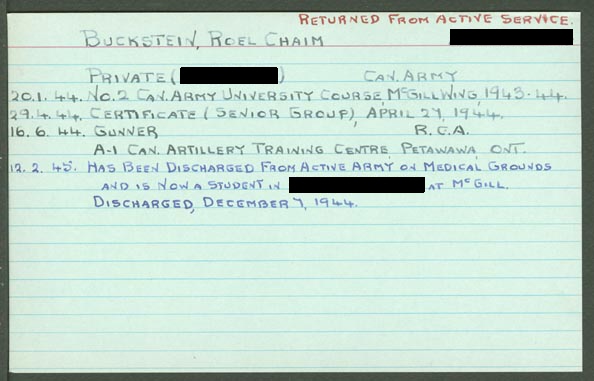 RETURNED FROM ACTIVE SERVICE.
BUCKSTEIN, ROEL CHAIM
PRIVATE ( ) CAN. ARMY
20.1.44. NO.2 CAN. ARMY UNIVERSITY COURSE, MCGILL WING, 1943-44.
29.4.44. CERTIFICATE (SENIOR GROUP), APRIL 27, 1944.
16.6.44. GUNNER R.C.A.
A-1 CAN. ARTILLERY TRAINING CENTRE, PETAWAWA ONT.
12.2.45. HAS BEEN DISCHARGED FROM ACTIVE ARMY ON MEDICAL GROUNDS
AND IS NOW A STUDENT IN AT MCGILL.
DISCHARGED, DECEMBER 7, 1944.